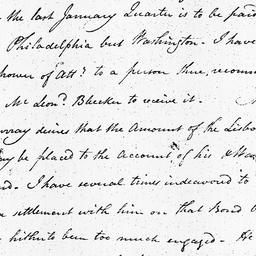 the last January Quarter is to be paid
Philadelphia but Washington - I have
power of Att? to a person there, recom
Mr Leond. Bleecker to receive it.
rray desires that the Amount of the Lisbo
ay be placed to the account of his
I have several times endeavored to
settlement with him on that Bond
hitherto been too much engaged - He